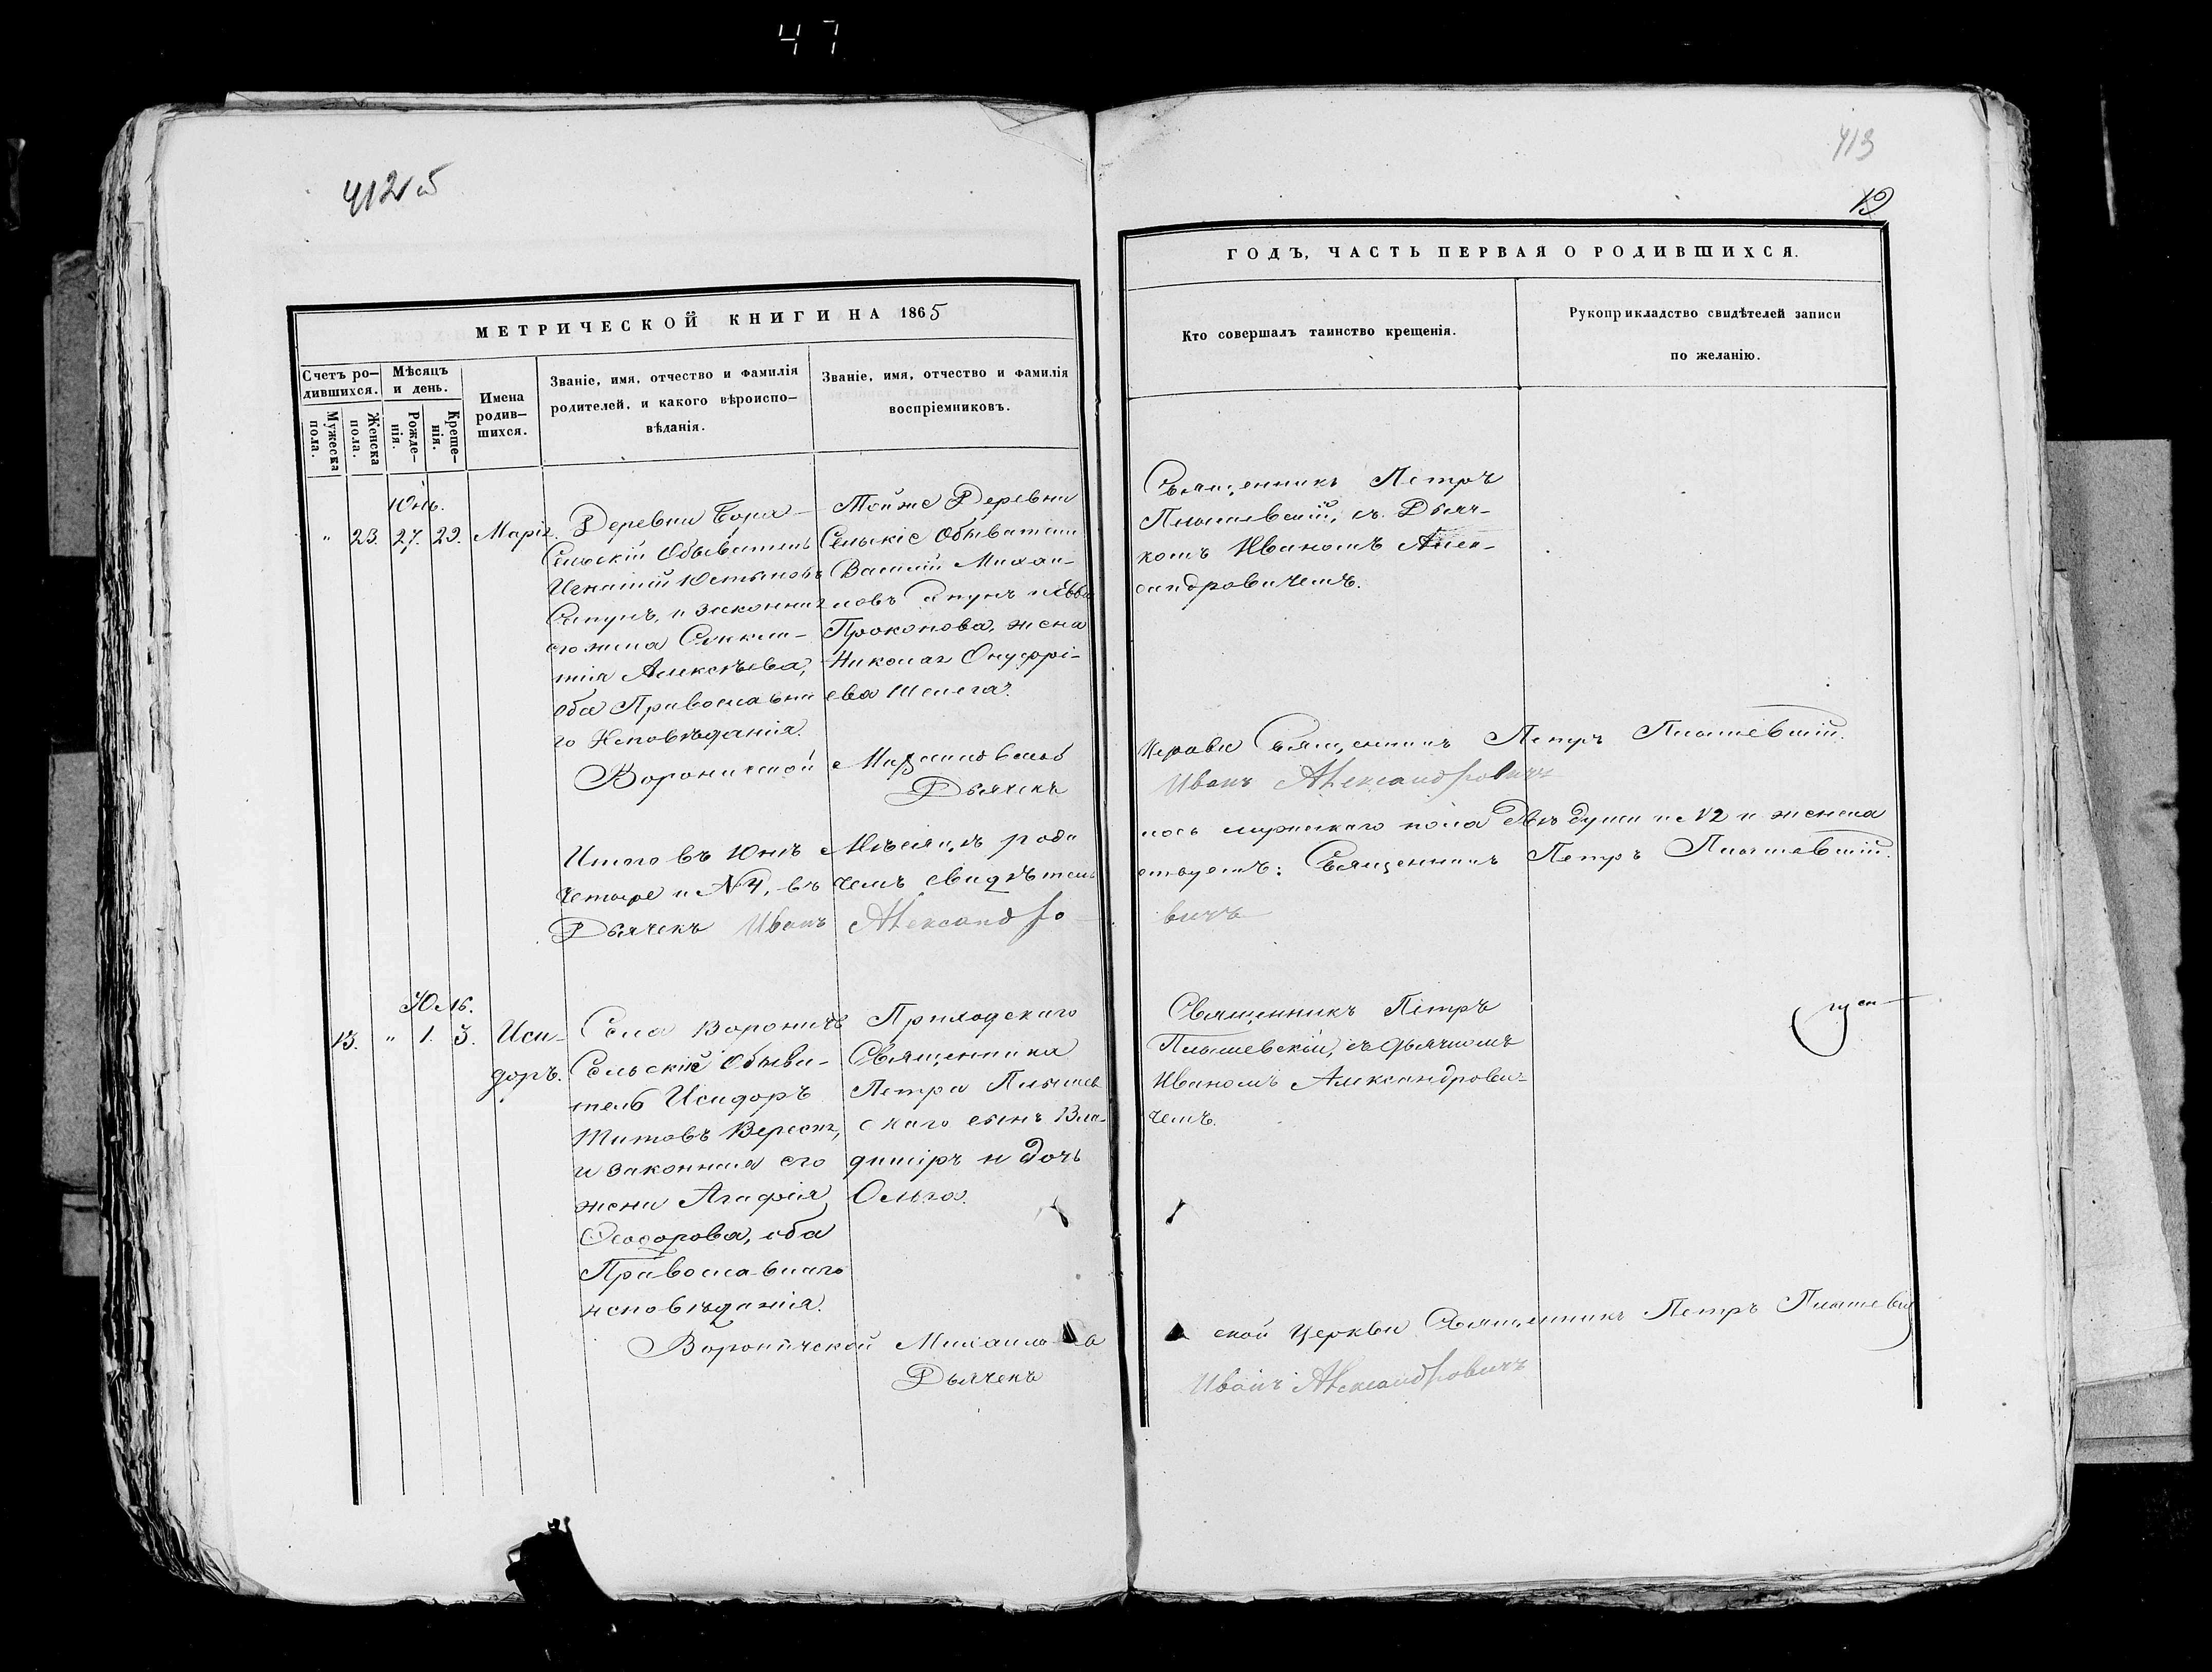 47
412 об
413
19
МЕТРИЧЕСКОЙ КНИГИ НА 1865
ГОДЪ, ЧАСТЬ ПЕРВАЯ О РОДИВШИХСЯ.
Счетъ ро-
дившихся.
Мужеска
пола.
Женска
пола.
Мѣсяцъ
и день.
Рожде-
нія.
Креще-
нія.
Имена
родив-
шихся.
Званіе, имя, отчество и фамилія
родителей, и какого вѣроиспо-
вѣданія.
Званіе, имя, отчество и фамилія
воспріемниковъ.
Кто совершалъ таинство крещенія.
Рукоприкладство свидѣтелей записи
по желанію.
Юнь.
" 23. 27. 29.
Марія.
Деревни
Сельскій Обыватель
Игнатій Юстиновъ
и законная
его жена
Алексѣева,
оба Православна
го Исповѣданія.
Тойже Деревни
Сельскіе Обыватели
Василій Михаи-
ловъ
Прокопова, жена
Николая Онуфрі-
ева
Священникъ Петръ
съ Дьяч-
комъ Иваномъ Алек-
сандровичемъ.
Вороничской Михайловской
Церкви Священникъ Петръ
Дьячекъ
Иванъ Александровичъ
Итого въ Юнѣ Мѣсяцѣ роди
лось мужескаго пола двѣ души и №2 и женска
четыре и №4, въ чемъ свидѣтель
ствуетъ: Священникъ Петръ
Дьячекъ Иванъ Александро-
вичъ
Юль.
13. " 1. 3.
Иси-
доръ.
Села Вороничъ
Сельскій Обыва-
тель Исидоръ
Титовъ
и законная его
жена Агафія
Ѳеодорова, оба
Православнаго
исповѣданія.
Приходскаго
Священника
Петра
скаго сынъ Вла-
диміръ и дочь
Ольга.
Священникъ Петръ
съ дьячкомъ
Иваномъ Александрови-
чемъ.
Вороничской
ской Церкви Священникъ Петръ
Дьячекъ
Иванъ Александровичъ